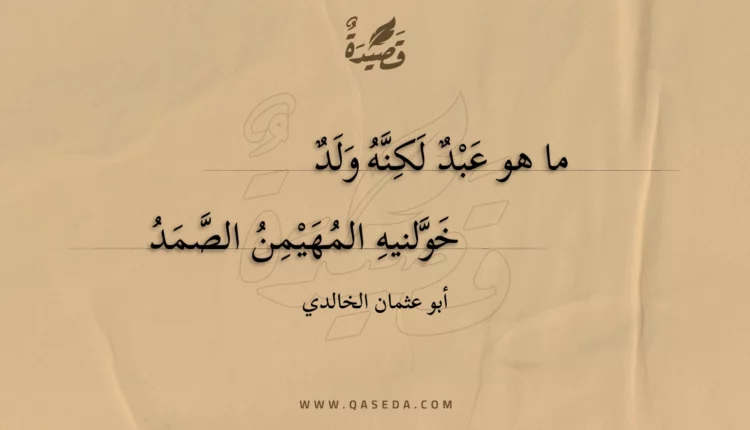 قَصِيدَةٌ
ما هو عَبْدٌ لَكِنَّهُ وَلَدٌ
خَوَّلنيهِ المُهَيْمِنُ الصَّمَدُ
أبو عثمان الخالدي
WWW.QASEDA.COM